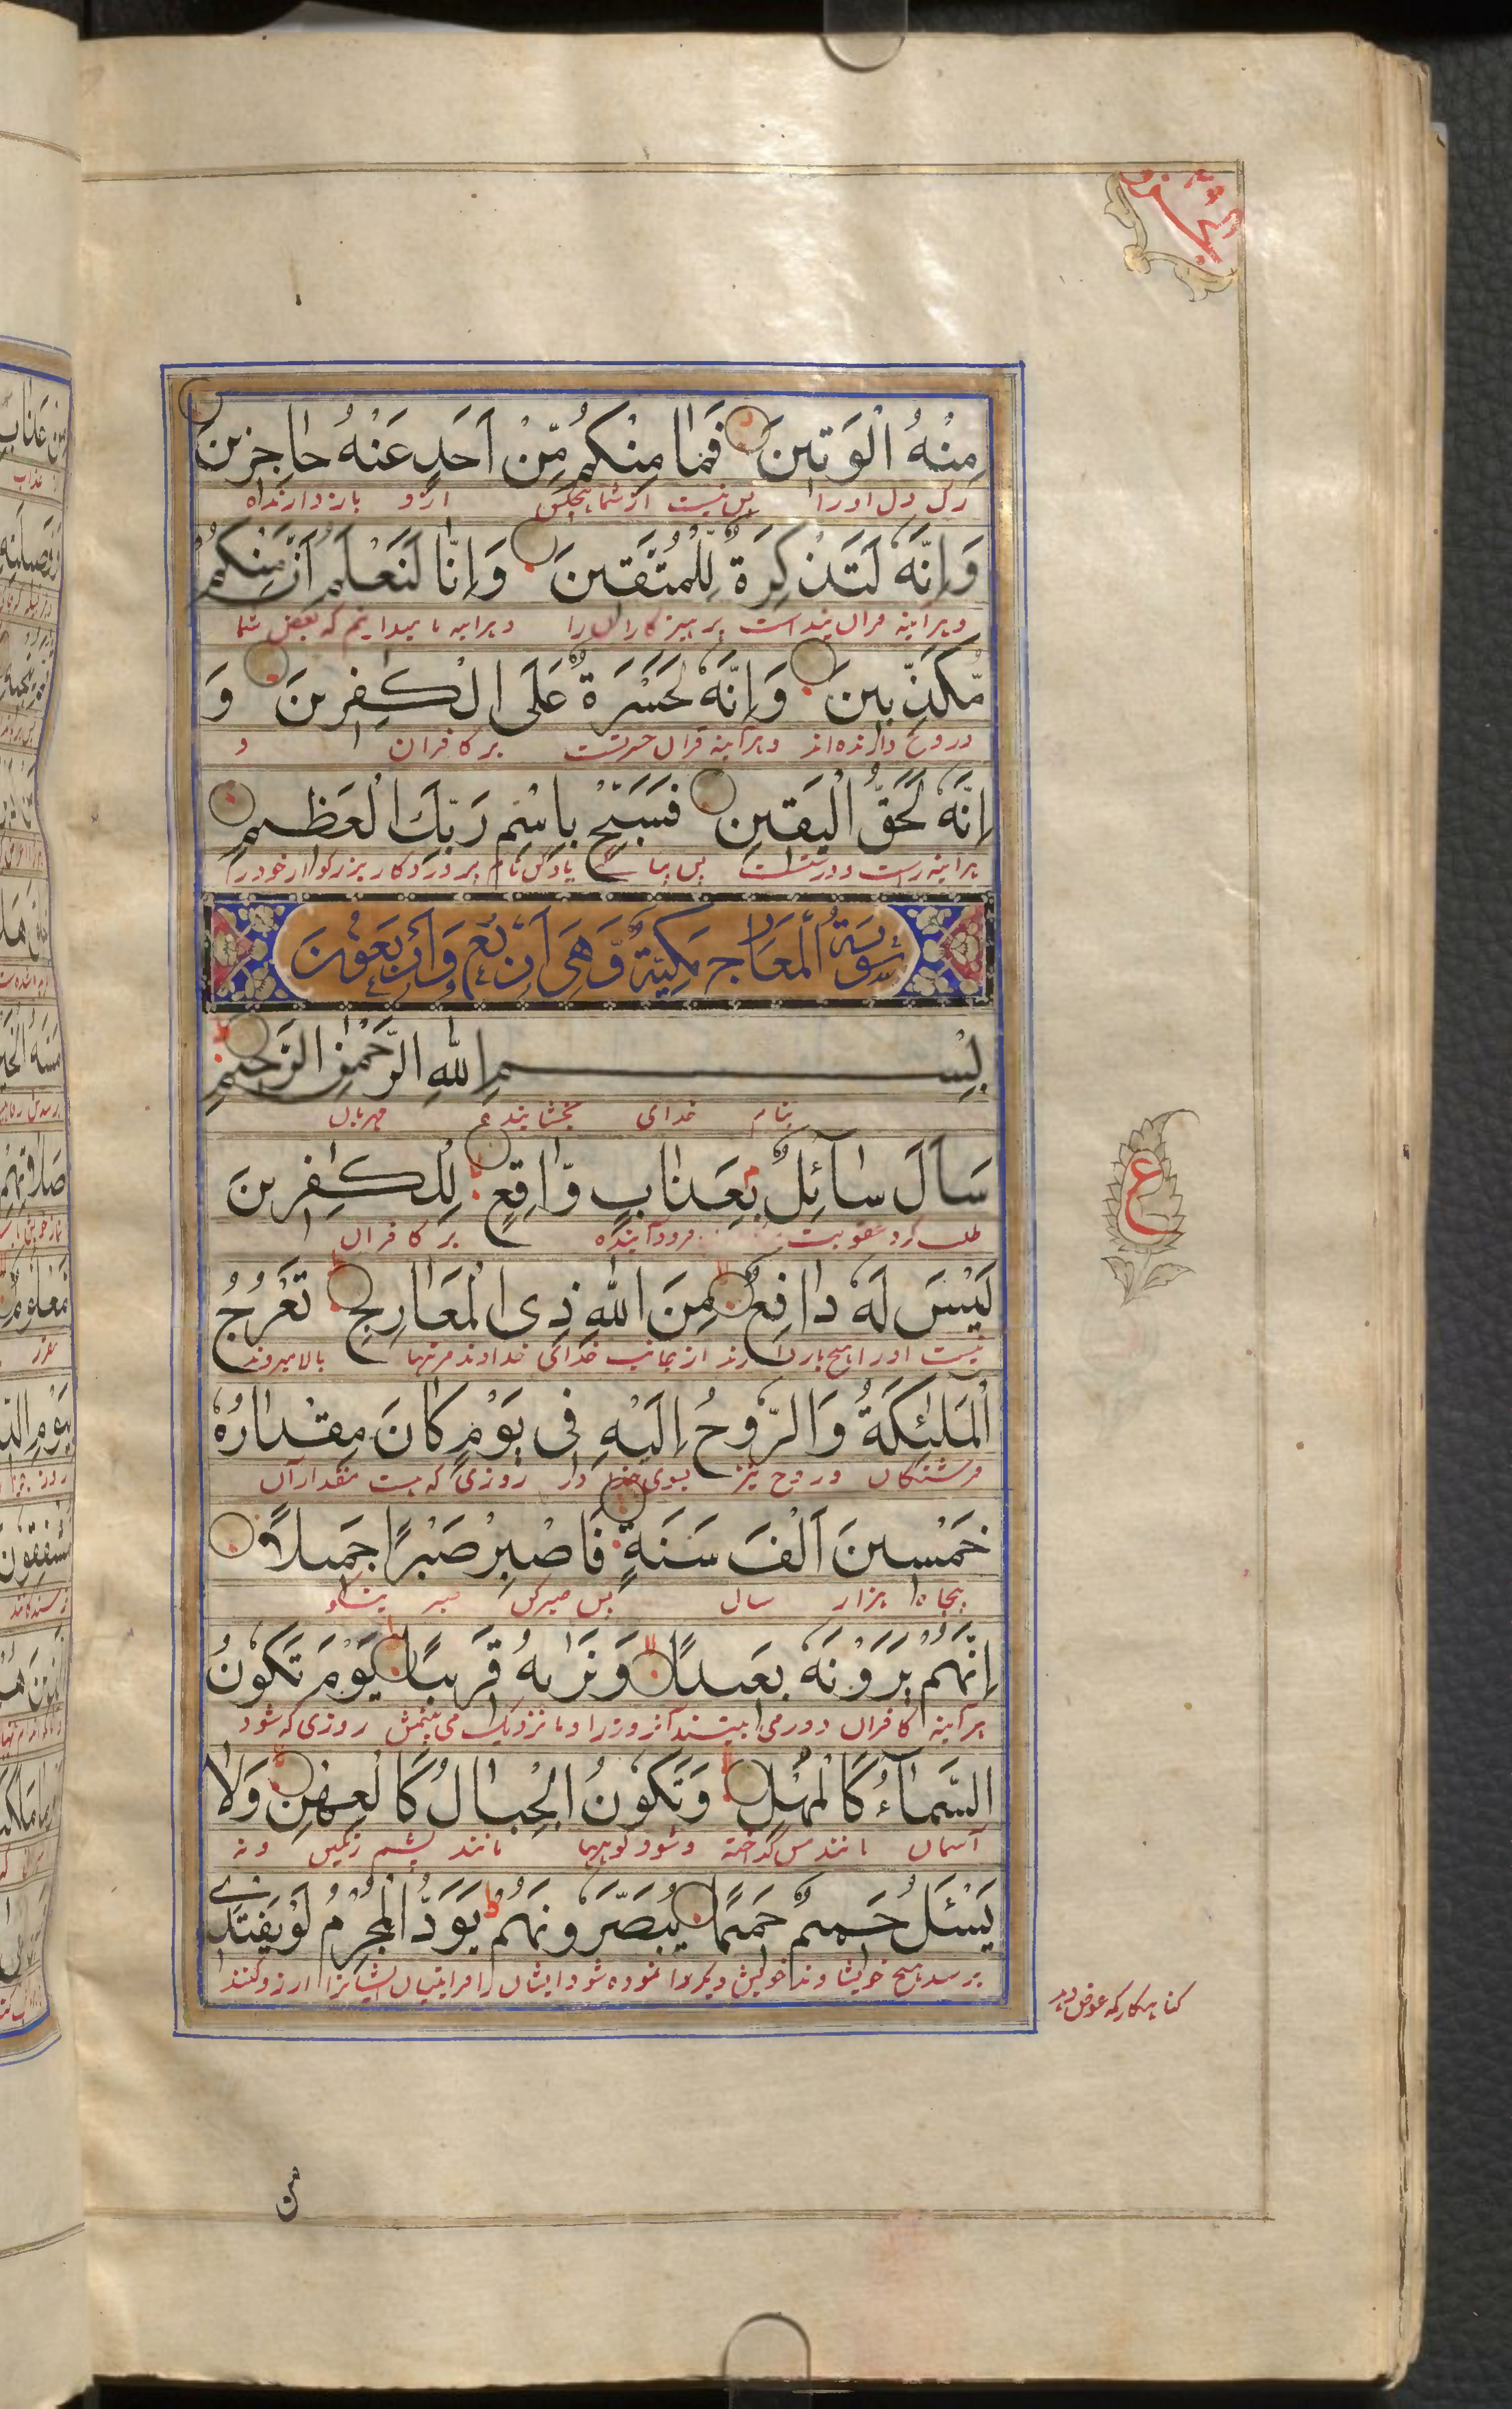 مِنْهُ الْوَتِينَ فَمَا مِنْكُمْ مِّنْ اَحَدٍ عَنْهُ حَاجِزِينَ
رک دل اورا پس نیست از شما هیچکس ازو بازدارنده
وَاِنَّهُ لَتَذْكِرَةٌ لِلْمُتَّقِينَ وَاِنَّا لَنَعْلَمُ اَنَّ مِنْكُمْ
وهراینه قران پنداست پرهیزکاران را وهراینه ما میدانیم که بعضی شما
مُّكَذِّبِينَ وَاِنَّهُ لَحَسْرَةٌ عَلَى الْكٰفِرِينَ وَ
دروغ دارنده‌اند وهرآینه قران حسرتست بر کافران و
اِنَّهُ لَحَقُّ الْيَقِينِ فَسَبِّحْ بِاسْمِ رَبِّكَ الْعَظِيمِ
هراینه راست ودرستست پس بپاکی یادکن نام پروردکار بزرکوار خودرا
سُورَةُ الْمَعَارِجِ مَكِيَّةٌ وَّهِيَ اَرْبَعٌ وَاَرْبَعُونَ
بِسْمِ اللهِ الرَّحْمٰنِ الرَّحِيمِ
بنام خدای بخشاینده مهربان
سَاَلَ سَآئِلٌ بِعَذَابٍ وَّاقِعٍ لِلْكٰفِرِينَ
طلب کرد عقوبت فرودآینده بر کافران
لَيْسَ لَهُ دَافِعٌ مِنَ اللهِ ذِى الْمَعَارِجِ تَعْرُجُ
نیست اورا هیچ بازدارنده از جانب خدای خداوند مرتبها بالا میروند
الْمَلٰئِكَةُ وَالرُّوحُ اِلَيْهِ فِى يَوْمٍ كَانَ مِقْدَارُهُ
فرشتکان وروح نیز بسوی خدا در روزی که هست مقدار آن
خَمْسِينَ اَلْفَ سَنَةٍ فَاصْبِرْ صَبْرًا جَمِيلًا
پنجاه هزار سال پس صبر کن صبر نیکو
اِنَّهُمْ يَرَوْنَهُ بَعِيدًا وَنَرٰيهُ قَرِيبًا يَوْمَ تَكُونُ
هرآینه کافران دور می‌بینند آنروز را وما نزدیک می‌بینمش روزی که شود
السَّمَآءُ كَالْمُهْلِ وَتَكُونُ الْجِبَالُ كَالْعِهْنِ وَلَا
آسمان مانند مس گداخته وشود کوهها مانند پشم رنکین ونه
يَسْئَلُ حَمِيمٌ حَمِيمًا يُبَصَّرُونَهُمْ يَوَدُّ الْمُجْرِمُ لَوْ يَفْتَدِى
پرسد هیچ خویشاوند خویش دیکر را نموده شود ایشان را ارزو کنند
کناهکار که عوض دهد
ع
من